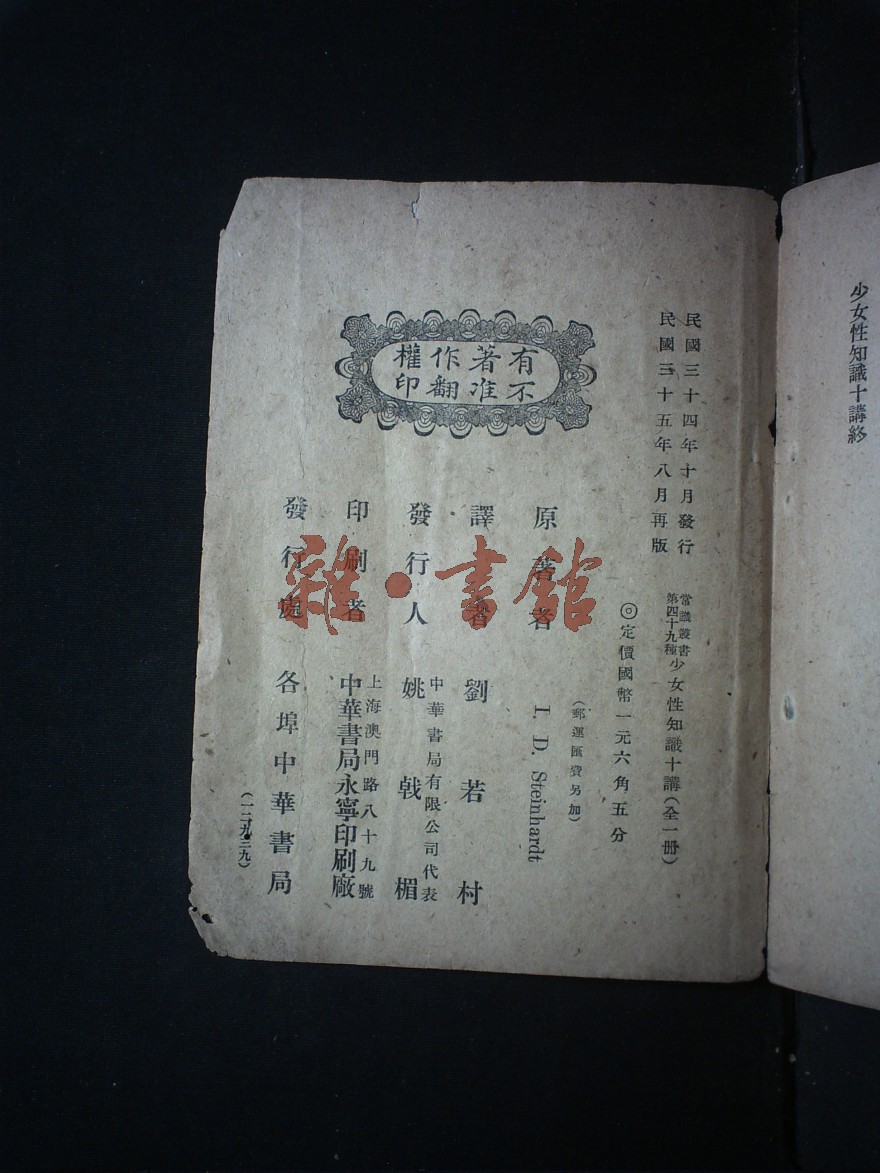 少女性知識十講終
民國三十四年十月發行
民國三十五年八月再版
常識叢書
第四十九種
少女性知識十講(全一册)
◎定價國幣一元六角五分
(郵運匯費另加)
有著作權
不准翻印
原著者 I. D. Steinhardt
譯者 劉若村
發行人 中華書局有限公司代表
姚戟楣
印刷者 上海澳門路八十九號
中華書局永寧印刷廠
發行處 各埠中華書局
(一二九三九)
雜·書館